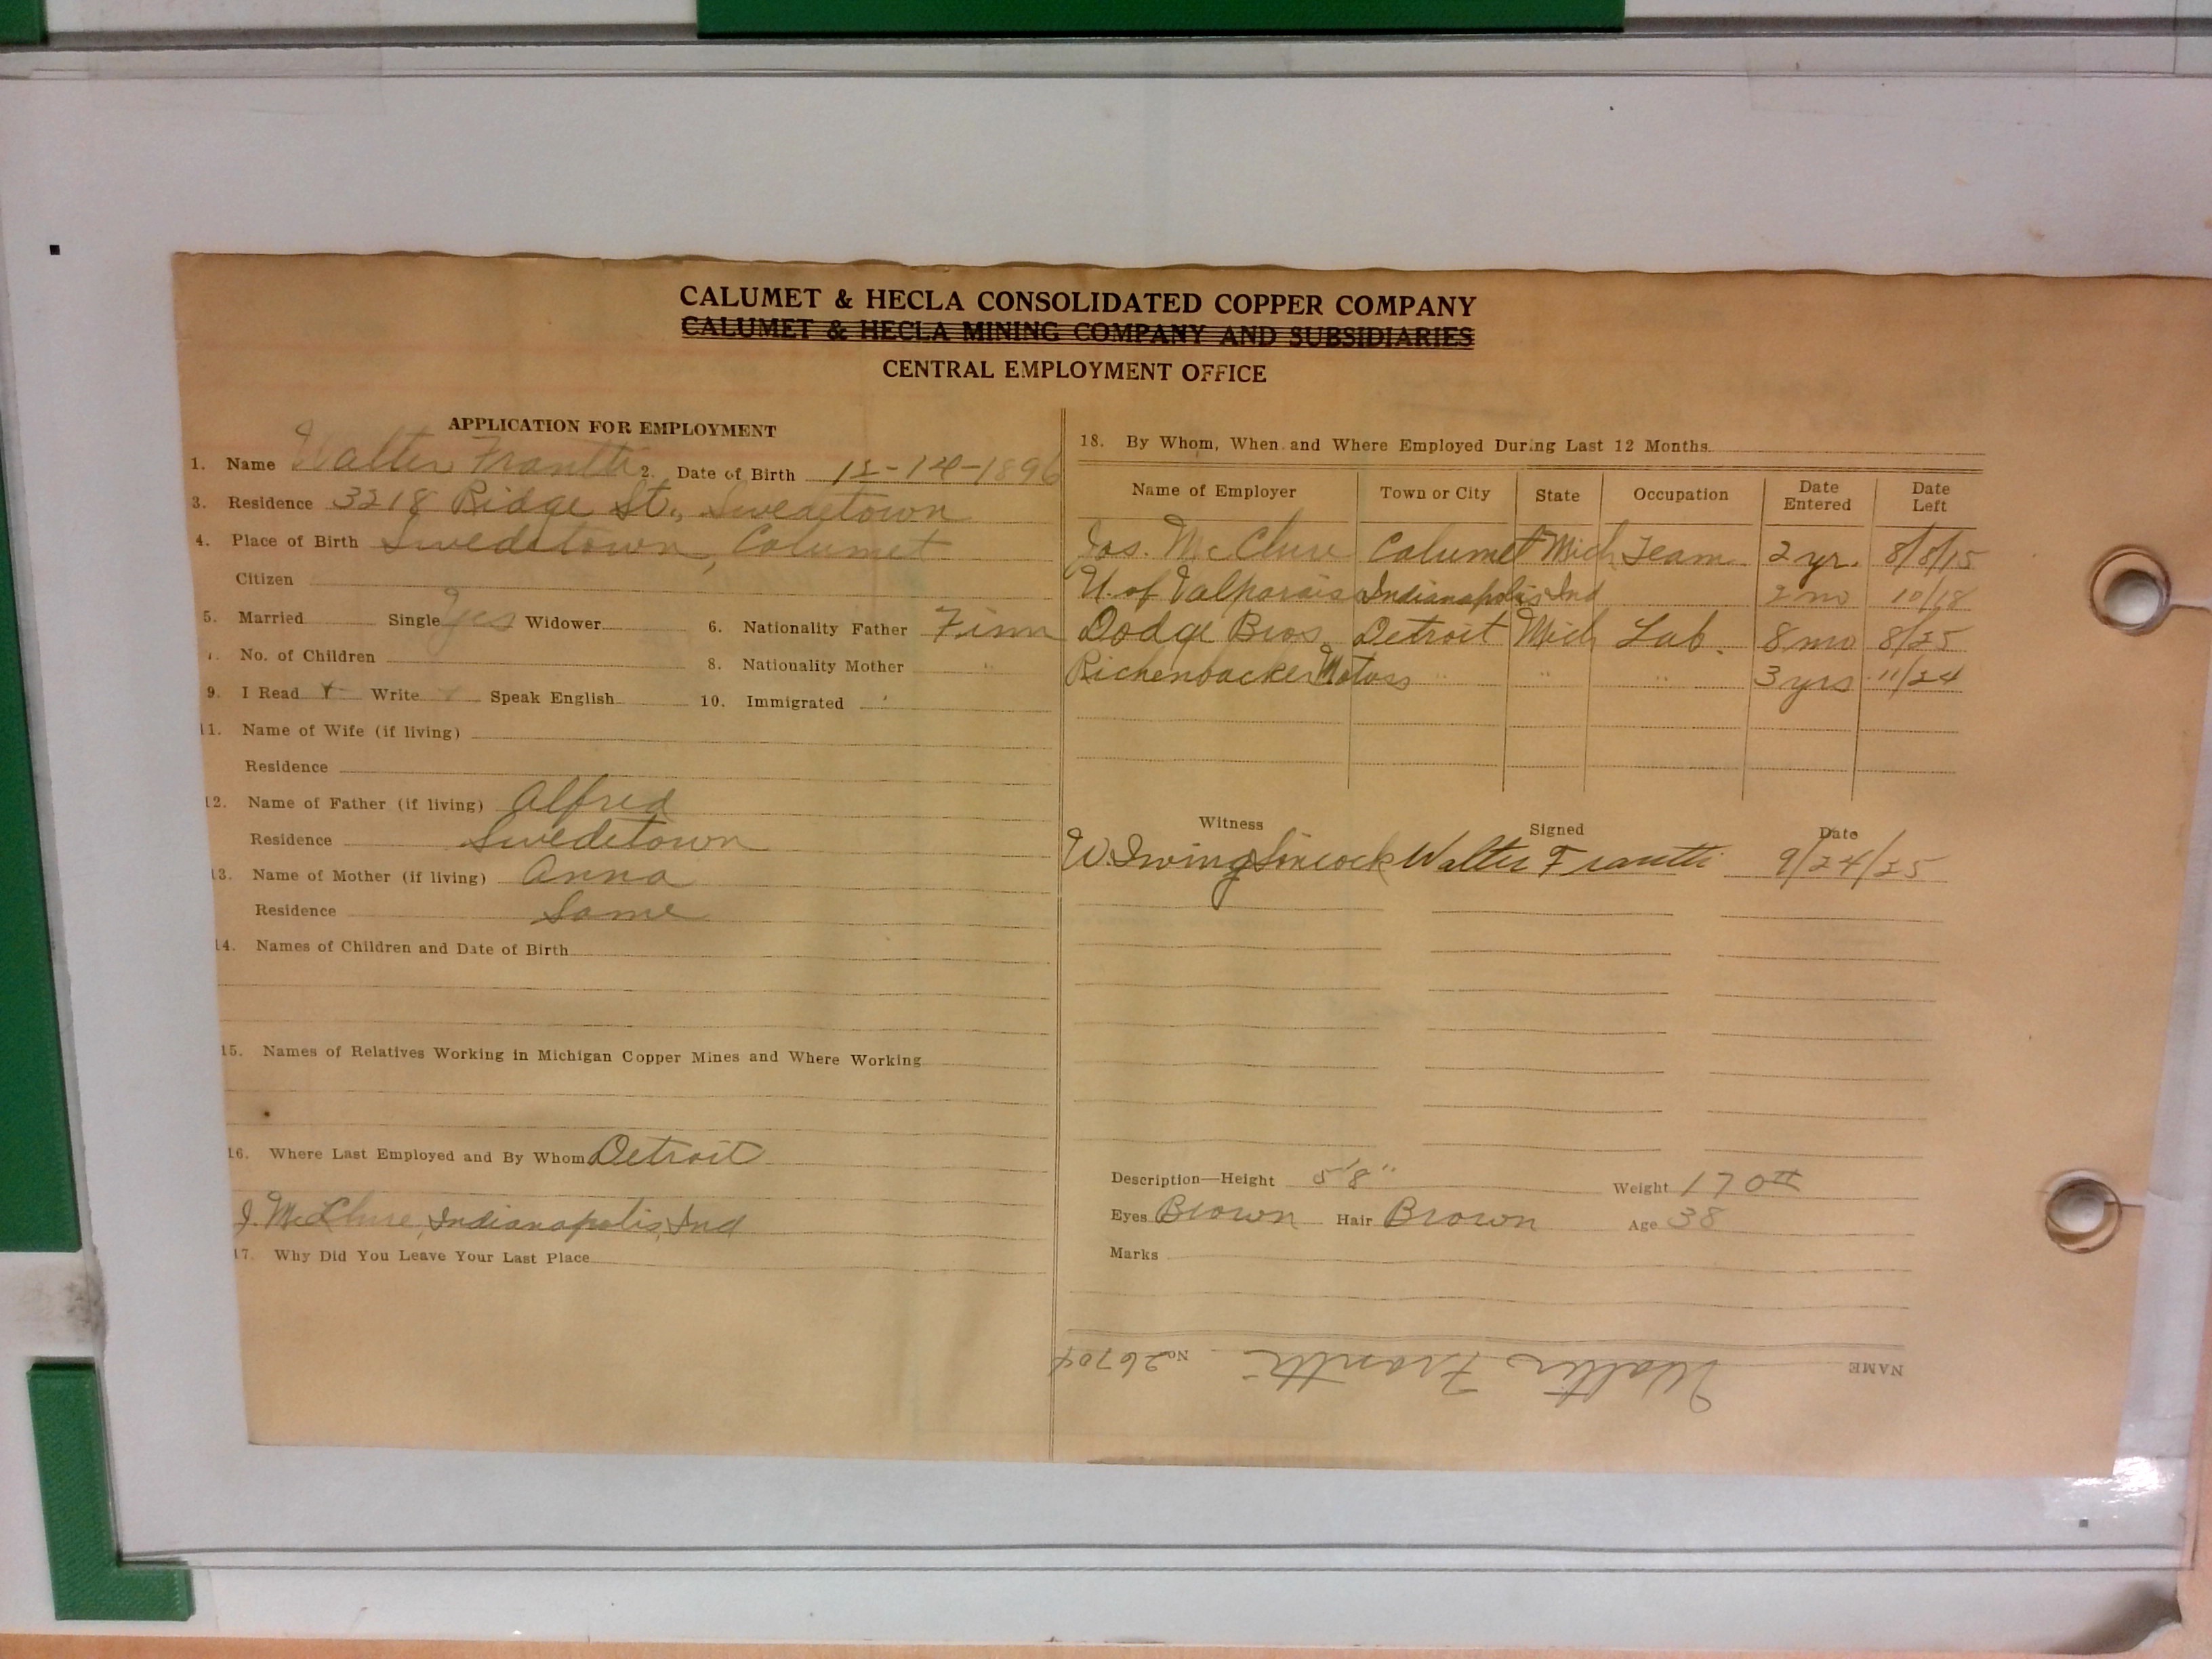 CALUMET & HECLA CONSOLIDATED COPPER COMPANY
CALUMET & HECLA MINING COMPANY AND SUBSIDIARIES
CENTRAL EMPLOYMENT OFFICE
APPLICATION FOR EMPLOYMENT
1. Name Walter Frantti 2. Date of Birth 12-14-1896
3. Residence 3218 Ridge St., Swedetown
4. Place of Birth Swedetown, Calumet
Citizen
5. Married Single Yes Widower 6. Nationality Father Finn
7. No. of Children 8. Nationality Mother "
9. I Read Write Speak English 10. Immigrated
11. Name of Wife (if living)
Residence
12. Name of Father (if living) Alfred
Residence Swedetown
13. Name of Mother (if living) Anna
Residence Same
14. Names of Children and Date of Birth
15. Names of Relatives Working in Michigan Copper Mines and Where Working
16. Where Last Employed and By Whom Detroit
J. McClure, Indianapolis, Ind
17. Why Did You Leave Your Last Place
18. By Whom, When and Where Employed During Last 12 Months
Name of Employer Town or City State Occupation Date Entered Date Left
Jas. McClure Calumet Mich Team 2 yr. 8/8/15
U. of Valparais Indianapolis Ind 2 mo 10/18
Dodge Bros. Detroit Mich Lab. 8 mo 8/25
Richenbacker Motors " " " 3 yrs 11/24
Witness Signed Date
W. Irving Sincock Walter Frantti 9/24/25
Description—Height 5'8" Weight 170#
Eyes Brown Hair Brown Age 38
Marks
NAME Walter Frantti No. 26704